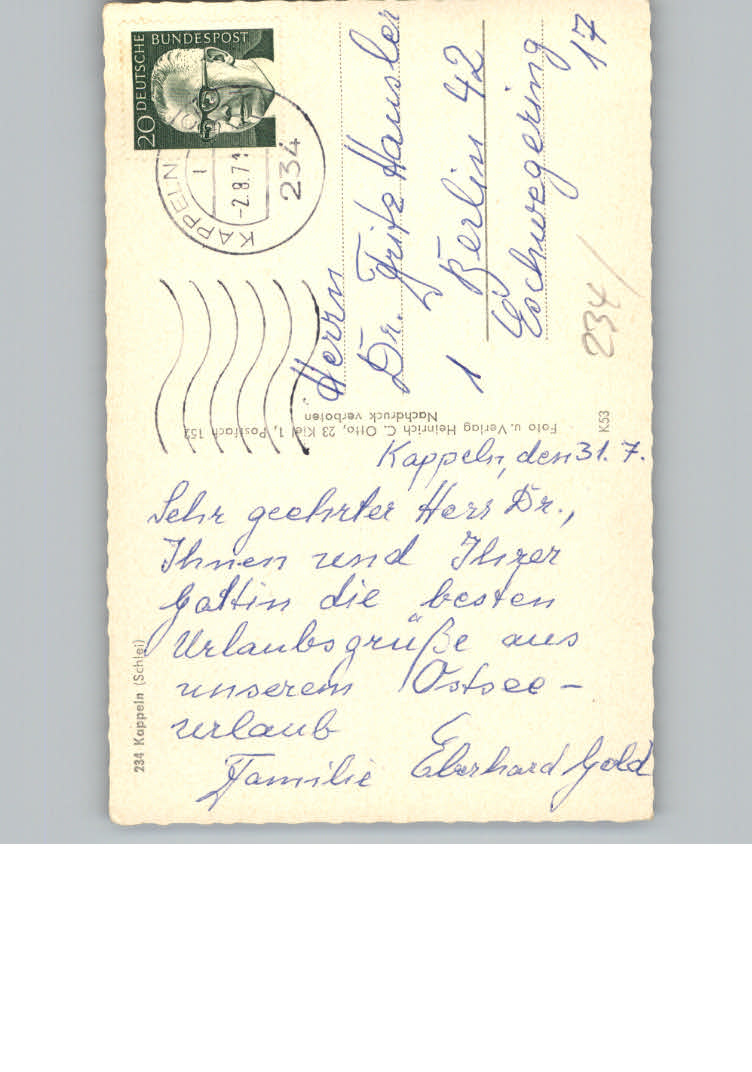 DEUTSCHE BUNDESPOST
20
KAPPELN
-2.8.71
234
Herrn
Dr. Fritz Hausler
1 Berlin 42
Eschwegering
17
234
Foto u. Verlag Heinrich C. Otto, 23 Kiel 1, Postfach 152
Nachdruck verboten
K53
234 Kappeln (Schlei)
Kappeln, den 31. 7.
Sehr geehrter Herr Dr.,
Ihnen und Ihrer
Gattin die besten
Urlaubsgrüße aus
unserem Ostsee-
urlaub
Familie Eberhard Gold